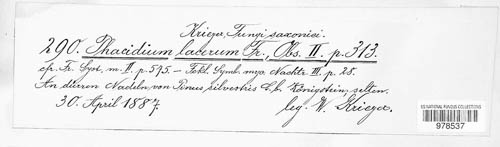 Krieger, Fungi saxonici.
290. Phacidium lacerum Fr., Obs. II. p. 313.
cfr. Fr. Syst. m. II. p. 575. – Fckl. Symb. myc. Nachtr. III. p. 28.
An dürren Nadeln von Pinus silvestris b. Königstein, selten.
30. April 1887. leg. W. Krieger.
US NATIONAL FUNGUS COLLECTIONS
978537